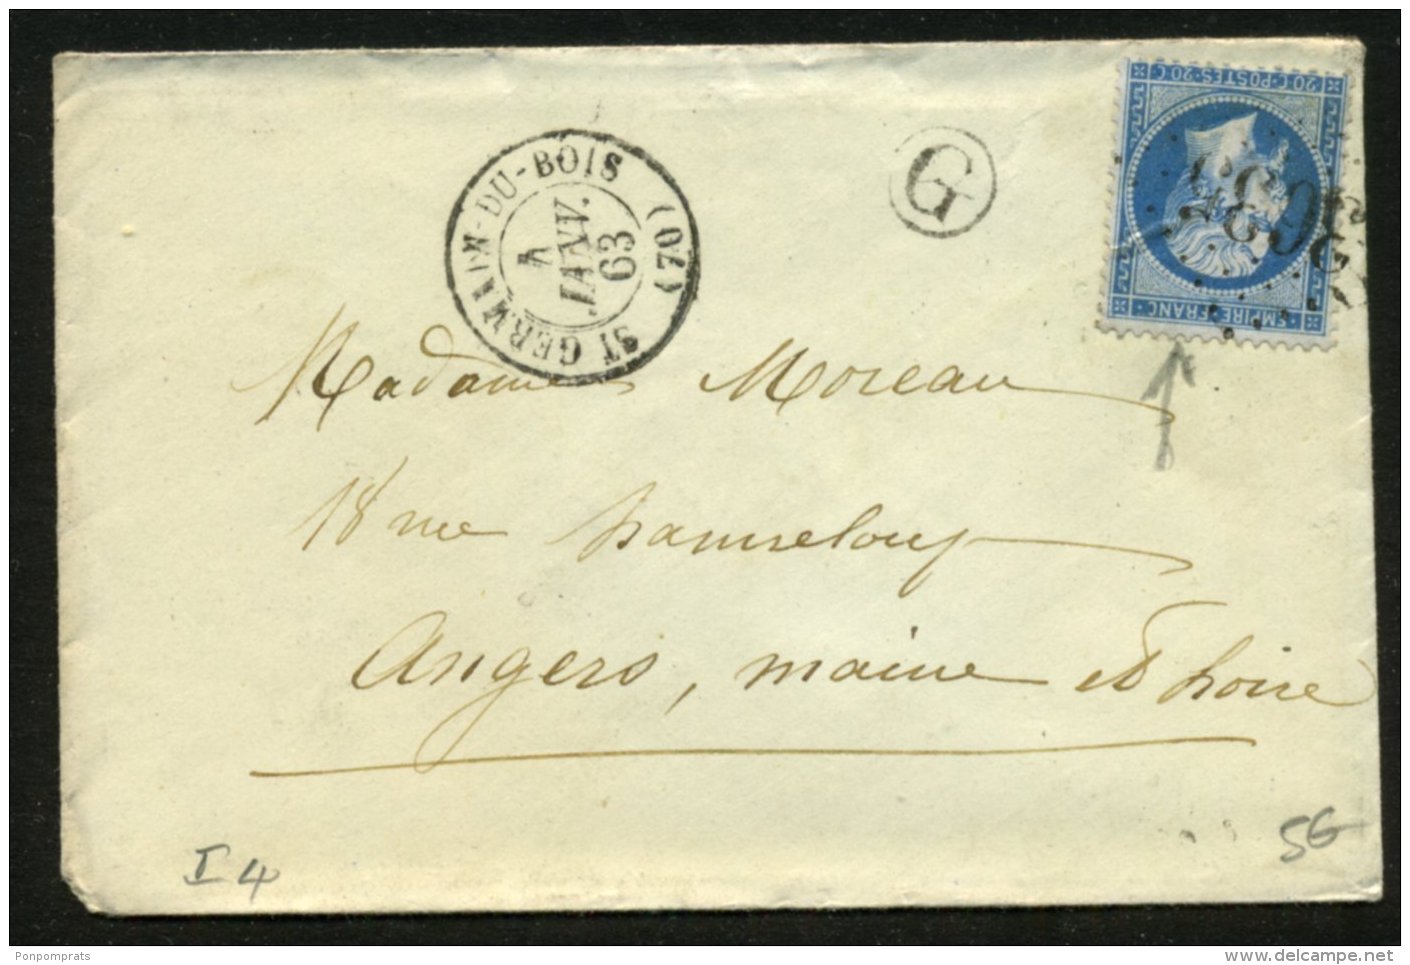 ST GERMAIN-DU-BOIS
(70)
JANV.
63
G
20 C·POSTES·20 C
EMPIRE·FRANC
Madame Moreau
18 rue hanneloup
Angers, maine et Loire
I 4
SG
Ponpomprats
www.delcampe.net